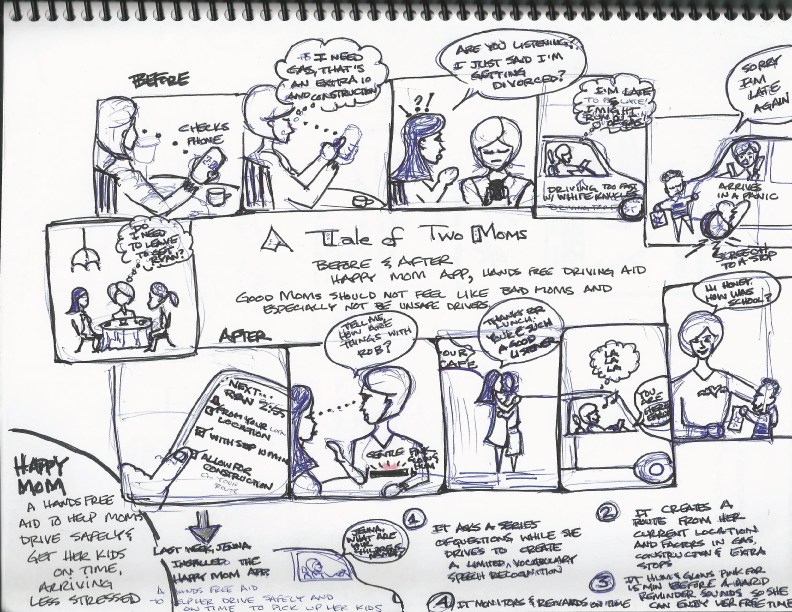 BEFORE
CHECKS
PHONE
I NEED
GAS, THAT'S
AN EXTRA 10
AND CONSTRUCTION
?!
ARE YOU LISTENING?
I JUST SAID I'M
GETTING
DIVORCED?
I'M LATE
I MIGHT
DRIVING TOO FAST
W/ WHITE KNUCKLES
SORRY
I'M
LATE
AGAIN
ARRIVES
IN A PANIC
SCREECH
TO A STOP
DO
I NEED
TO LEAVE
TO GET
RYAN?
A Tale of Two Moms
BEFORE & AFTER
HAPPY MOM APP, HANDS FREE DRIVING AID
GOOD MOMS SHOULD NOT FEEL LIKE BAD MOMS AND
ESPECIALLY NOT BE UNSAFE DRIVERS.
AFTER
NEXT...
RYAN 2:55
FROM YOUR
LOCATION
WITH STOP 10 MIN
ALLOW FOR
CONSTRUCTION
TELL ME,
HOW ARE
THINGS WITH
ROB?
GENTLE
HUM
OUR
CAFE
THANKS FOR
LUNCH.
YOU'RE SUCH
A GOOD
LISTENER
LA
LA
LA
YOU
ARE
HERE
HI HONEY.
HOW WAS
SCHOOL?
HAPPY
MOM
A HANDS FREE
AID TO HELP MOMS
DRIVE SAFELY &
GET HER KIDS
ON TIME,
ARRIVING
LESS STRESSED
LAST WEEK, JENNA
INSTALLED THE
HAPPY MOM APP.
A HANDS FREE AID
TO HELP HER DRIVE SAFELY AND
ON TIME TO PICK UP HER KIDS
JENNA,
WHAT ARE
YOUR
1 IT ASKS A SERIES
OF QUESTIONS, WHILE SHE
DRIVES TO CREATE
A LIMITED VOCABULARY
SPEECH RECOGNITION
2 IT CREATES A
ROUTE FROM HER
CURRENT LOCATION
AND FACTORS IN GAS,
CONSTRUCTION & EXTRA
STOPS
3 IT HUMS & GLOWS PINK FOR
15 MIN BEFORE A HARD
REMINDER SOUNDS SO SHE
CAN ENJOY HER FREE TIME
4 IT MONITORS & REWARDS ON TIME